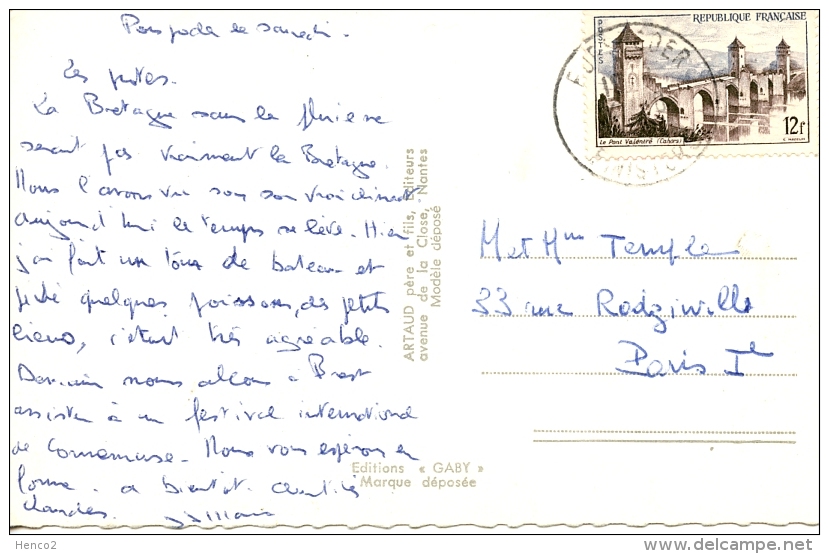 Les jutes.
La Bretagne sans la pluie ne
serait pas vraiment la Bretagne.
Nous l'avons vu sous son vrai climat
aujourd'hui le temps se lève. Hier
j'ai fait un tour de bateau et
pêché quelques poissons, des petits
lieus, c'était très agréable.
Demain nous allons à Brest
assister à un festival international
de Cornemuse. Nous vous espérons en
forme. a bientôt.
ARTAUD père et fils, éditeurs
avenue de la Close, Nantes
Modèle déposé
Editions « GABY »
Marque déposée
REPUBLIQUE FRANÇAISE
POSTES
Le Pont Valentré (Cahors)
12f
M et Mme Temple
33 rue Radziwill
Paris Ie
Henco2